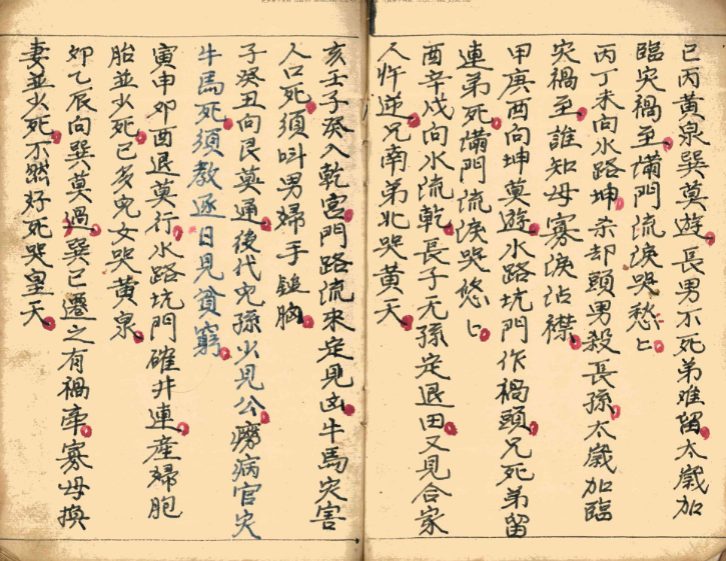 巳丙黄泉巽莫遊長男不死弟难留太歲加
臨灾禍至満門流淚哭愁〻
丙丁未向水路坤杀却頭男殺長孫太歲加臨
灾禍至誰知母寡淚沾襟
甲庚酉向坤莫遊水路坑門作禍頭兄死弟留
連弟死満門流淚哭悠〻
酉辛戍向水流乾長子无孫定退田又見合家
人忤逆兄南弟北哭黄天
亥壬子癸入乾宮門路流来定見凶牛馬灾害
人口死須叫男婦手鎚胸
子癸丑向艮莫通後代児孫少見公癆病官灾
牛馬死須教逐日見貧窮
寅申卯酉退莫行水路坑門碓井連産婦胞
胎並少死已多児女哭黄泉
卯乙辰向巽莫過巽巳遷之有禍牽寡母換
妻並少死不然好死哭皇天